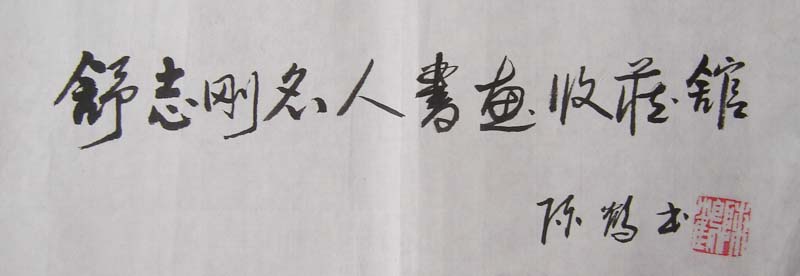 舒志刚名人書画收藏舘
陈鹤书